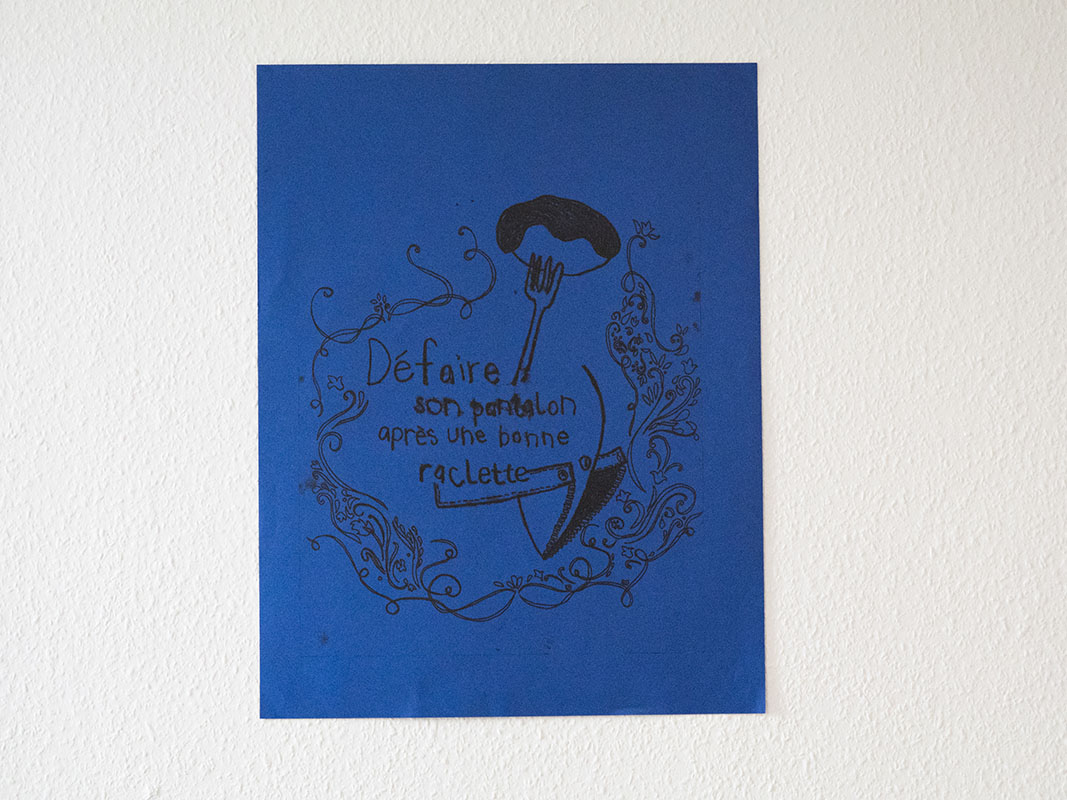 Défaire
son pantalon
après une bonne
raclette